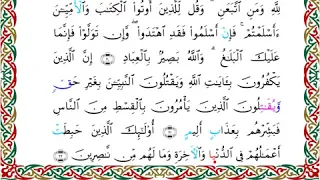 لِلَّهِ وَمَنِ ٱتَّبَعَنِ ۗ وَقُل لِّلَّذِينَ أُوتُوا۟ ٱلْكِتَٰبَ وَٱلْأُمِّيِّـۧنَ
ءَأَسْلَمْتُمْ ۚ فَإِنْ أَسْلَمُوا۟ فَقَدِ ٱهْتَدَوا۟ ۖ وَّإِن تَوَلَّوْا۟ فَإِنَّمَا
عَلَيْكَ ٱلْبَلَٰغُ ۗ وَٱللَّهُ بَصِيرٌۢ بِٱلْعِبَادِ ۝٢٠ إِنَّ ٱلَّذِينَ
يَكْفُرُونَ بِـَٔايَٰتِ ٱللَّهِ وَيَقْتُلُونَ ٱلنَّبِيِّـۧنَ بِغَيْرِ حَقٍّ
وَيَقْتُلُونَ ٱلَّذِينَ يَأْمُرُونَ بِٱلْقِسْطِ مِنَ ٱلنَّاسِ
فَبَشِّرْهُم بِعَذَابٍ أَلِيمٍ ۝٢١ أُو۟لَٰٓئِكَ ٱلَّذِينَ حَبِطَتْ
أَعْمَٰلُهُمْ فِى ٱلدُّنْيَا وَٱلْـَٔاخِرَةِ وَمَا لَهُم مِّن نَّٰصِرِينَ ۝٢٢